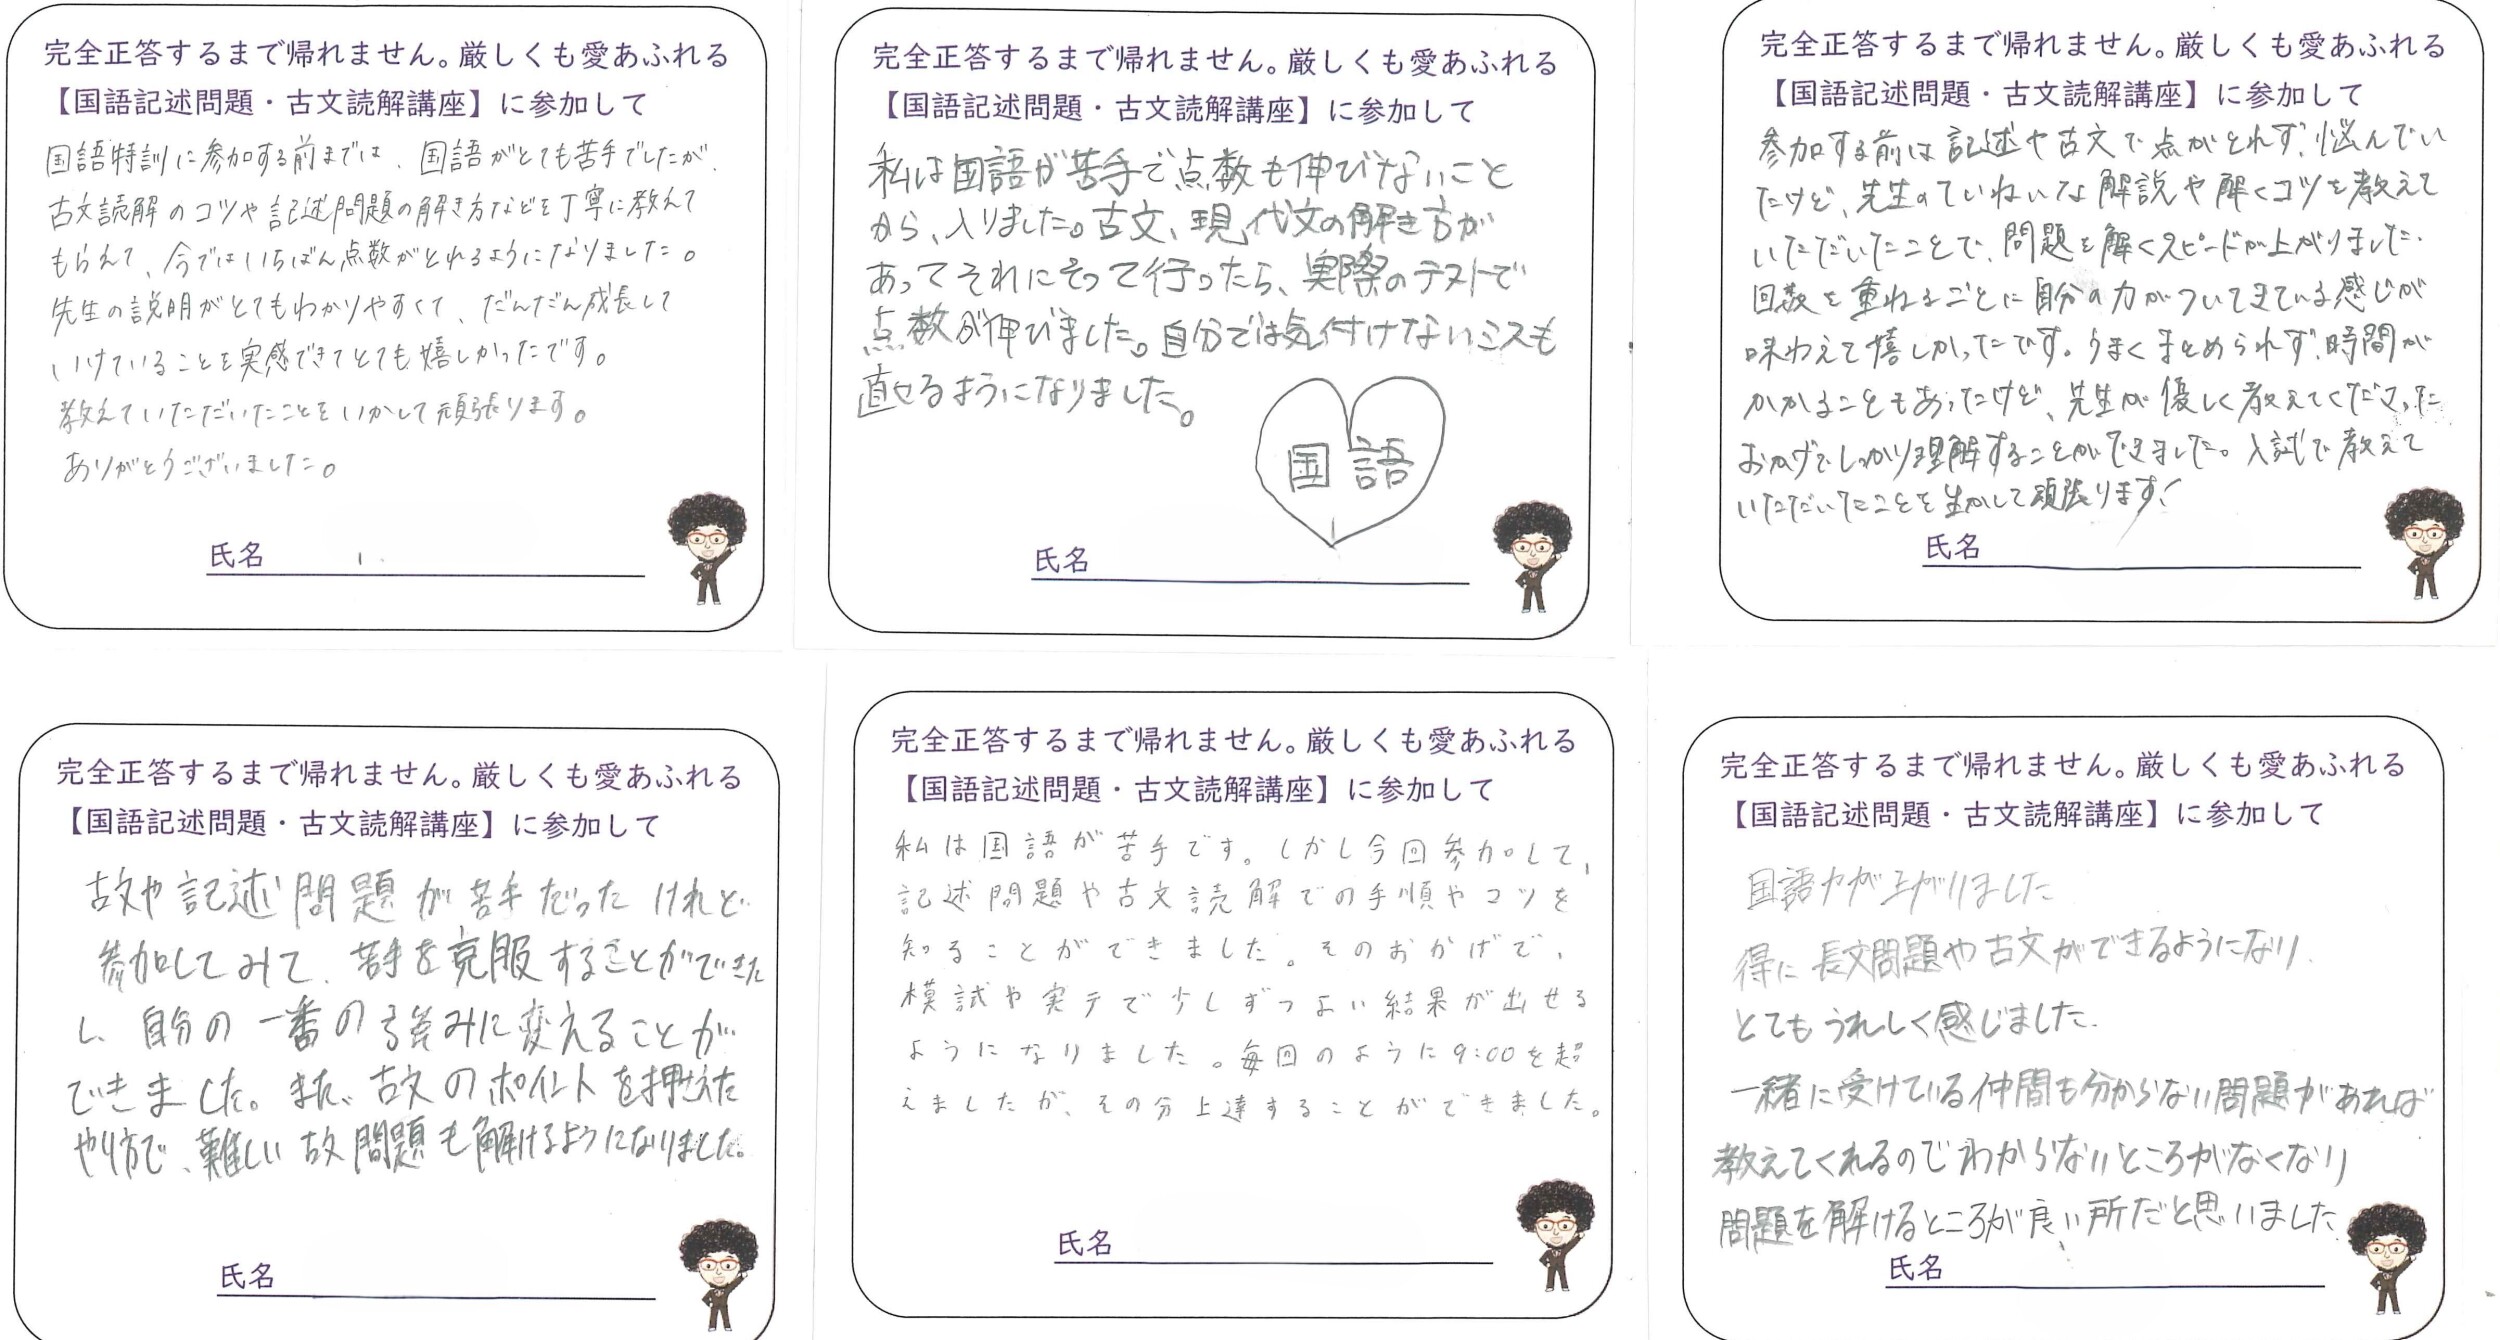 完全正答するまで帰れません。厳しくも愛あふれる
【国語記述問題・古文読解講座】に参加して
国語特訓に参加する前までは、国語がとても苦手でしたが、
古文読解のコツや記述問題の解き方などを丁寧に教えて
もらえて、今ではいちばん点数がとれるようになりました。
先生の説明がとてもわかりやすくて、だんだん成長して
いけていることを実感できてとても嬉しかったです。
教えていただいたことをいかして頑張ります。
ありがとうございました。
氏名
完全正答するまで帰れません。厳しくも愛あふれる
【国語記述問題・古文読解講座】に参加して
私は国語が苦手で点数も伸びないこと
から、入りました。古文、現代文の解き方が
あってそれにそって行ったら、実際のテストで
点数が伸びました。自分では気付けないミスも
直せるようになりました。
国語
氏名
完全正答するまで帰れません。厳しくも愛あふれる
【国語記述問題・古文読解講座】に参加して
参加する前は記述や古文で点がとれず、悩んでい
たけど、先生のていねいな解説や解くコツを教えて
いただいたことで、問題を解くスピードが上がりました。
回数を重ねるごとに自分の力がついてきている感じが
味わえて嬉しかったです。うまくまとめられず、時間が
かかることもあったけど、先生が優しく教えてくださった
おかげでしっかり理解することができました。入試で教えて
いただいたことを生かして頑張ります!
氏名
完全正答するまで帰れません。厳しくも愛あふれる
【国語記述問題・古文読解講座】に参加して
古文や記述問題が苦手だったけれど
参加してみて、苦手を克服することができた
し、自分の一番の強みに変えることが
できました。また、古文のポイントを押さえた
やり方で、難しい古文問題も解けるようになりました。
氏名
完全正答するまで帰れません。厳しくも愛あふれる
【国語記述問題・古文読解講座】に参加して
私は国語が苦手です。しかし今回参加して、
記述問題や古文読解での手順やコツを
知ることができました。そのおかげで、
模試や実テで少しずつよい結果が出せる
ようになりました。毎回のように9:00を超
えましたが、その分上達することができました。
氏名
完全正答するまで帰れません。厳しくも愛あふれる
【国語記述問題・古文読解講座】に参加して
国語力が上がりました
得に長文問題や古文ができるようになり、
とてもうれしく感じました。
一緒に受けている仲間も分からない問題があれば
教えてくれるのでわからないところがなくなり
問題を解けるところが良い所だと思いました
氏名